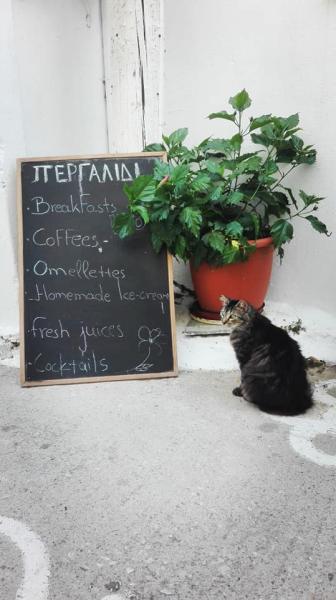 ΠΕΡΓΑΛΙΔΙ
· Breakfasts
· Coffees
· Omellettes
· Homemade Ice-cream!
· fresh juices
· Cocktails